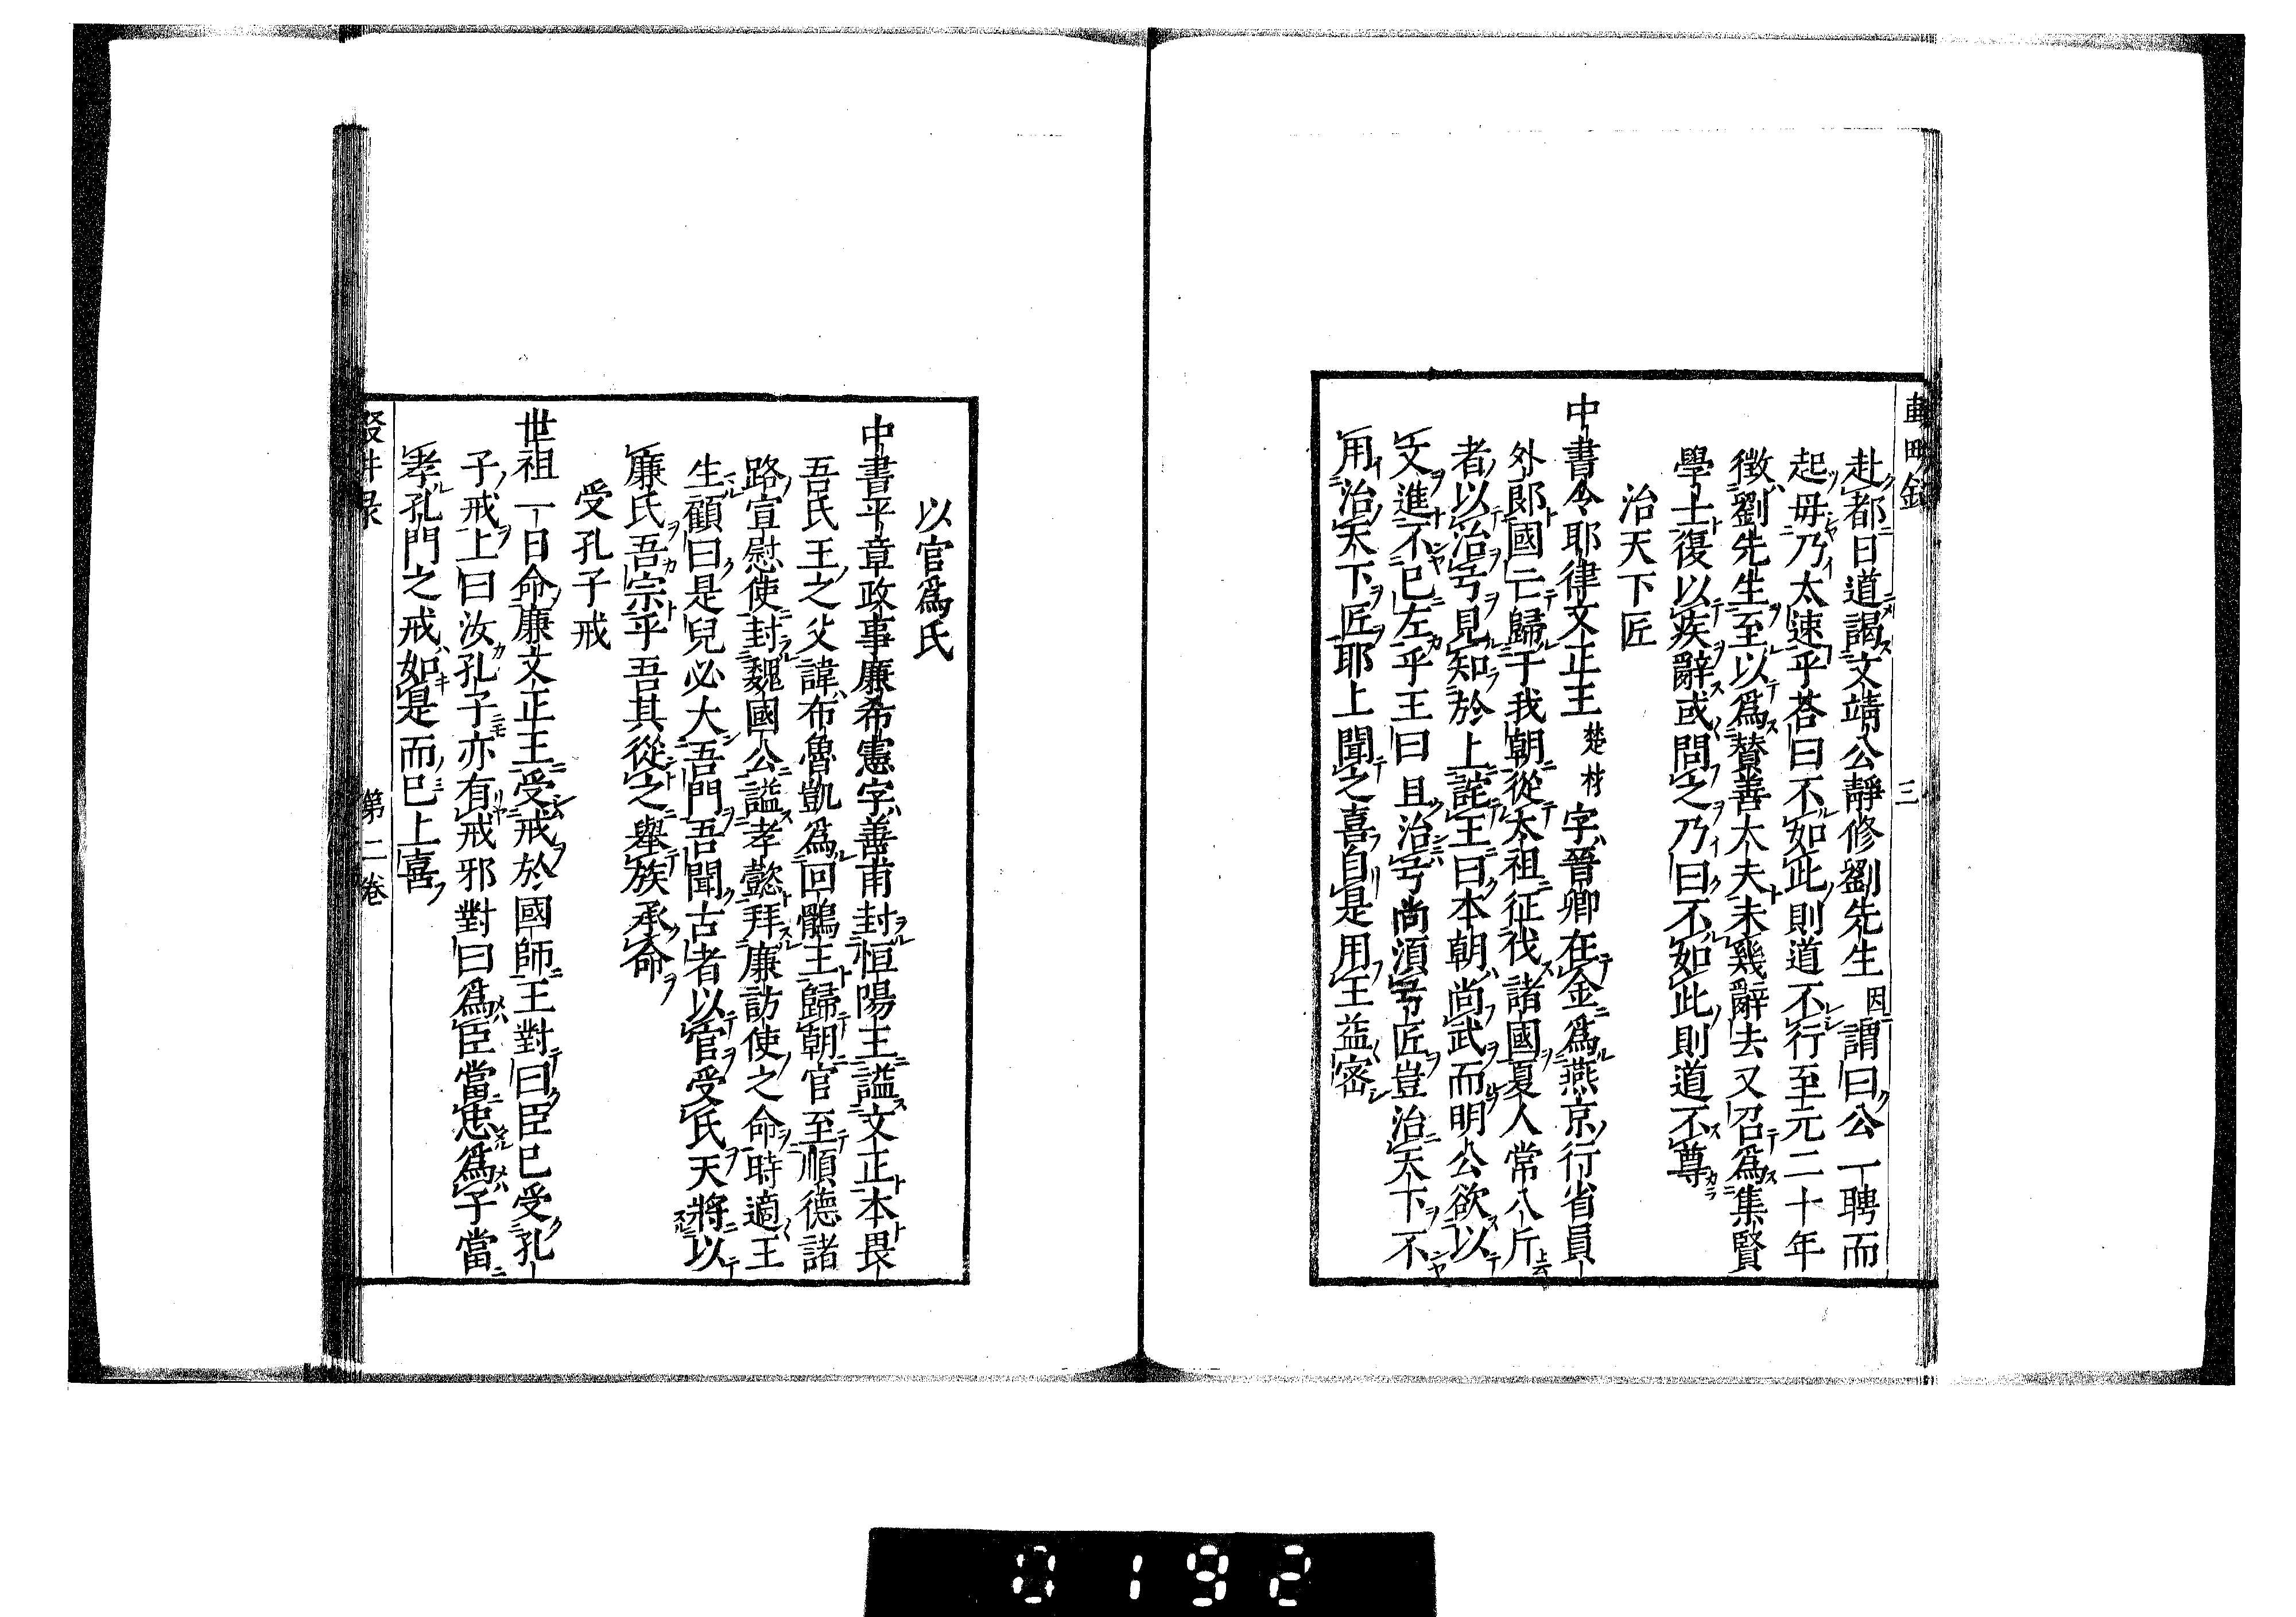 三
赴都日道謁文靖公靜修劉先生因謂曰公一聘而
起毋乃太速乎荅曰不如此則道不行至元二十年
徵劉先生至以爲賛善大夫未幾辭去又召爲集賢
學士復以疾辭或問之乃曰不如此則道不尊
治天下匠
中書令耶律文正王楚材字晉卿在金爲燕京行省員
外郎國亡歸于我朝從太祖征伐諸國夏人常八斤
者以治弓見知於上詫王曰本朝尚武而明公欲以
文進不已左乎王曰且治弓尚須弓匠豈治天下不
用治天下匠耶上聞之喜自是用王益密
以官爲氏
中書平章政事廉希憲字善甫封恒陽王謚文正本畏
吾氏王之父諱布魯凱爲回鶻王歸朝官至順德諸
路宣慰使封魏國公謚孝懿拜廉訪使之命時適王
生顧曰是兒必大吾門吾聞古者以官受氏天將以
廉氏吾宗乎吾其從之舉族承命
受孔子戒
世祖一日命廉文正王受戒於國師王對曰臣已受孔
子戒上曰汝孔子亦有戒邪對曰爲臣當忠爲子當
孝孔門之戒如是而已上喜
第二卷
0192